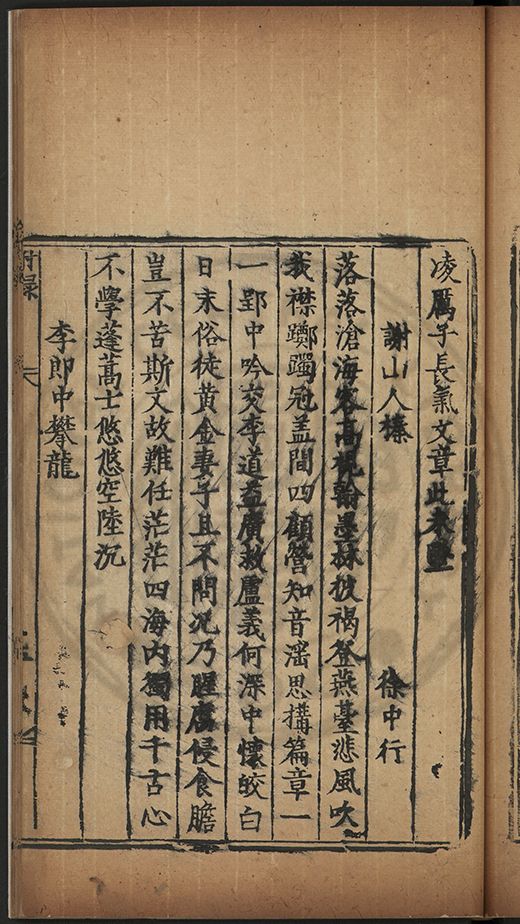 凌厲乎長氣文章此未墜
謝山人榛 徐中行
落落滄海客高視翰墨林披褐登燕臺悲風吹
我襟躑躅冠盖間四顧營知音滛思搆篇章一
一郢中吟交李道益廣救盧義何深中懷皎白
日末俗徒黃金妻子且不問况乃腥膻侵食膽
豈不苦斯文故難任茫茫四海內獨用千古心
不學蓬蒿士悠悠空陸沉
李郎中攀龍
附錄